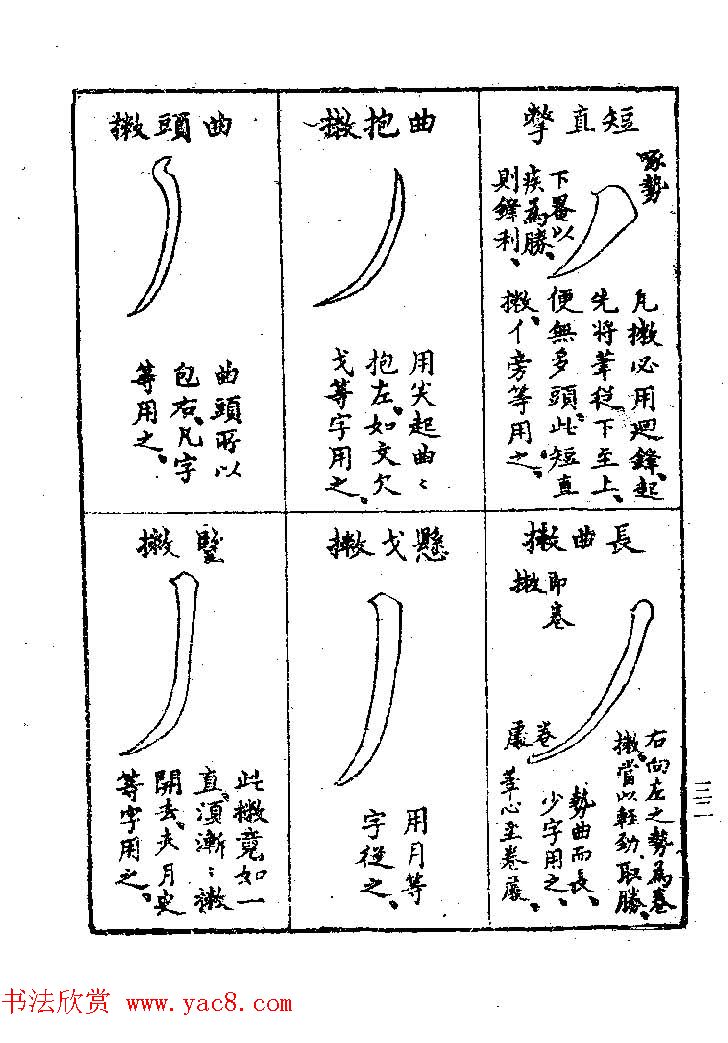 短直撆
啄勢
下畧以
疾爲勝、
則鋒利、
凡撇必用廻鋒、起
先將筆從下至上、
便無多頭、此短直
撇、亻旁等用之、
曲抱撇
用尖起曲〻
抱左、如文欠
戈等字用之、
曲頭撇
曲頭所以
包右、凡字
等用之、
長曲撇
即卷
撇
右向左之勢爲卷
撇、當以輕勁取勝、
勢曲而長、
少字用之、
卷
處
筆心至卷處、
懸戈撇
用月等
字從之、
豎撇
此撇竟如一
直、須漸〻撇
開去、夫月史
等字用之、
三二
书法欣赏 www.yac8.com